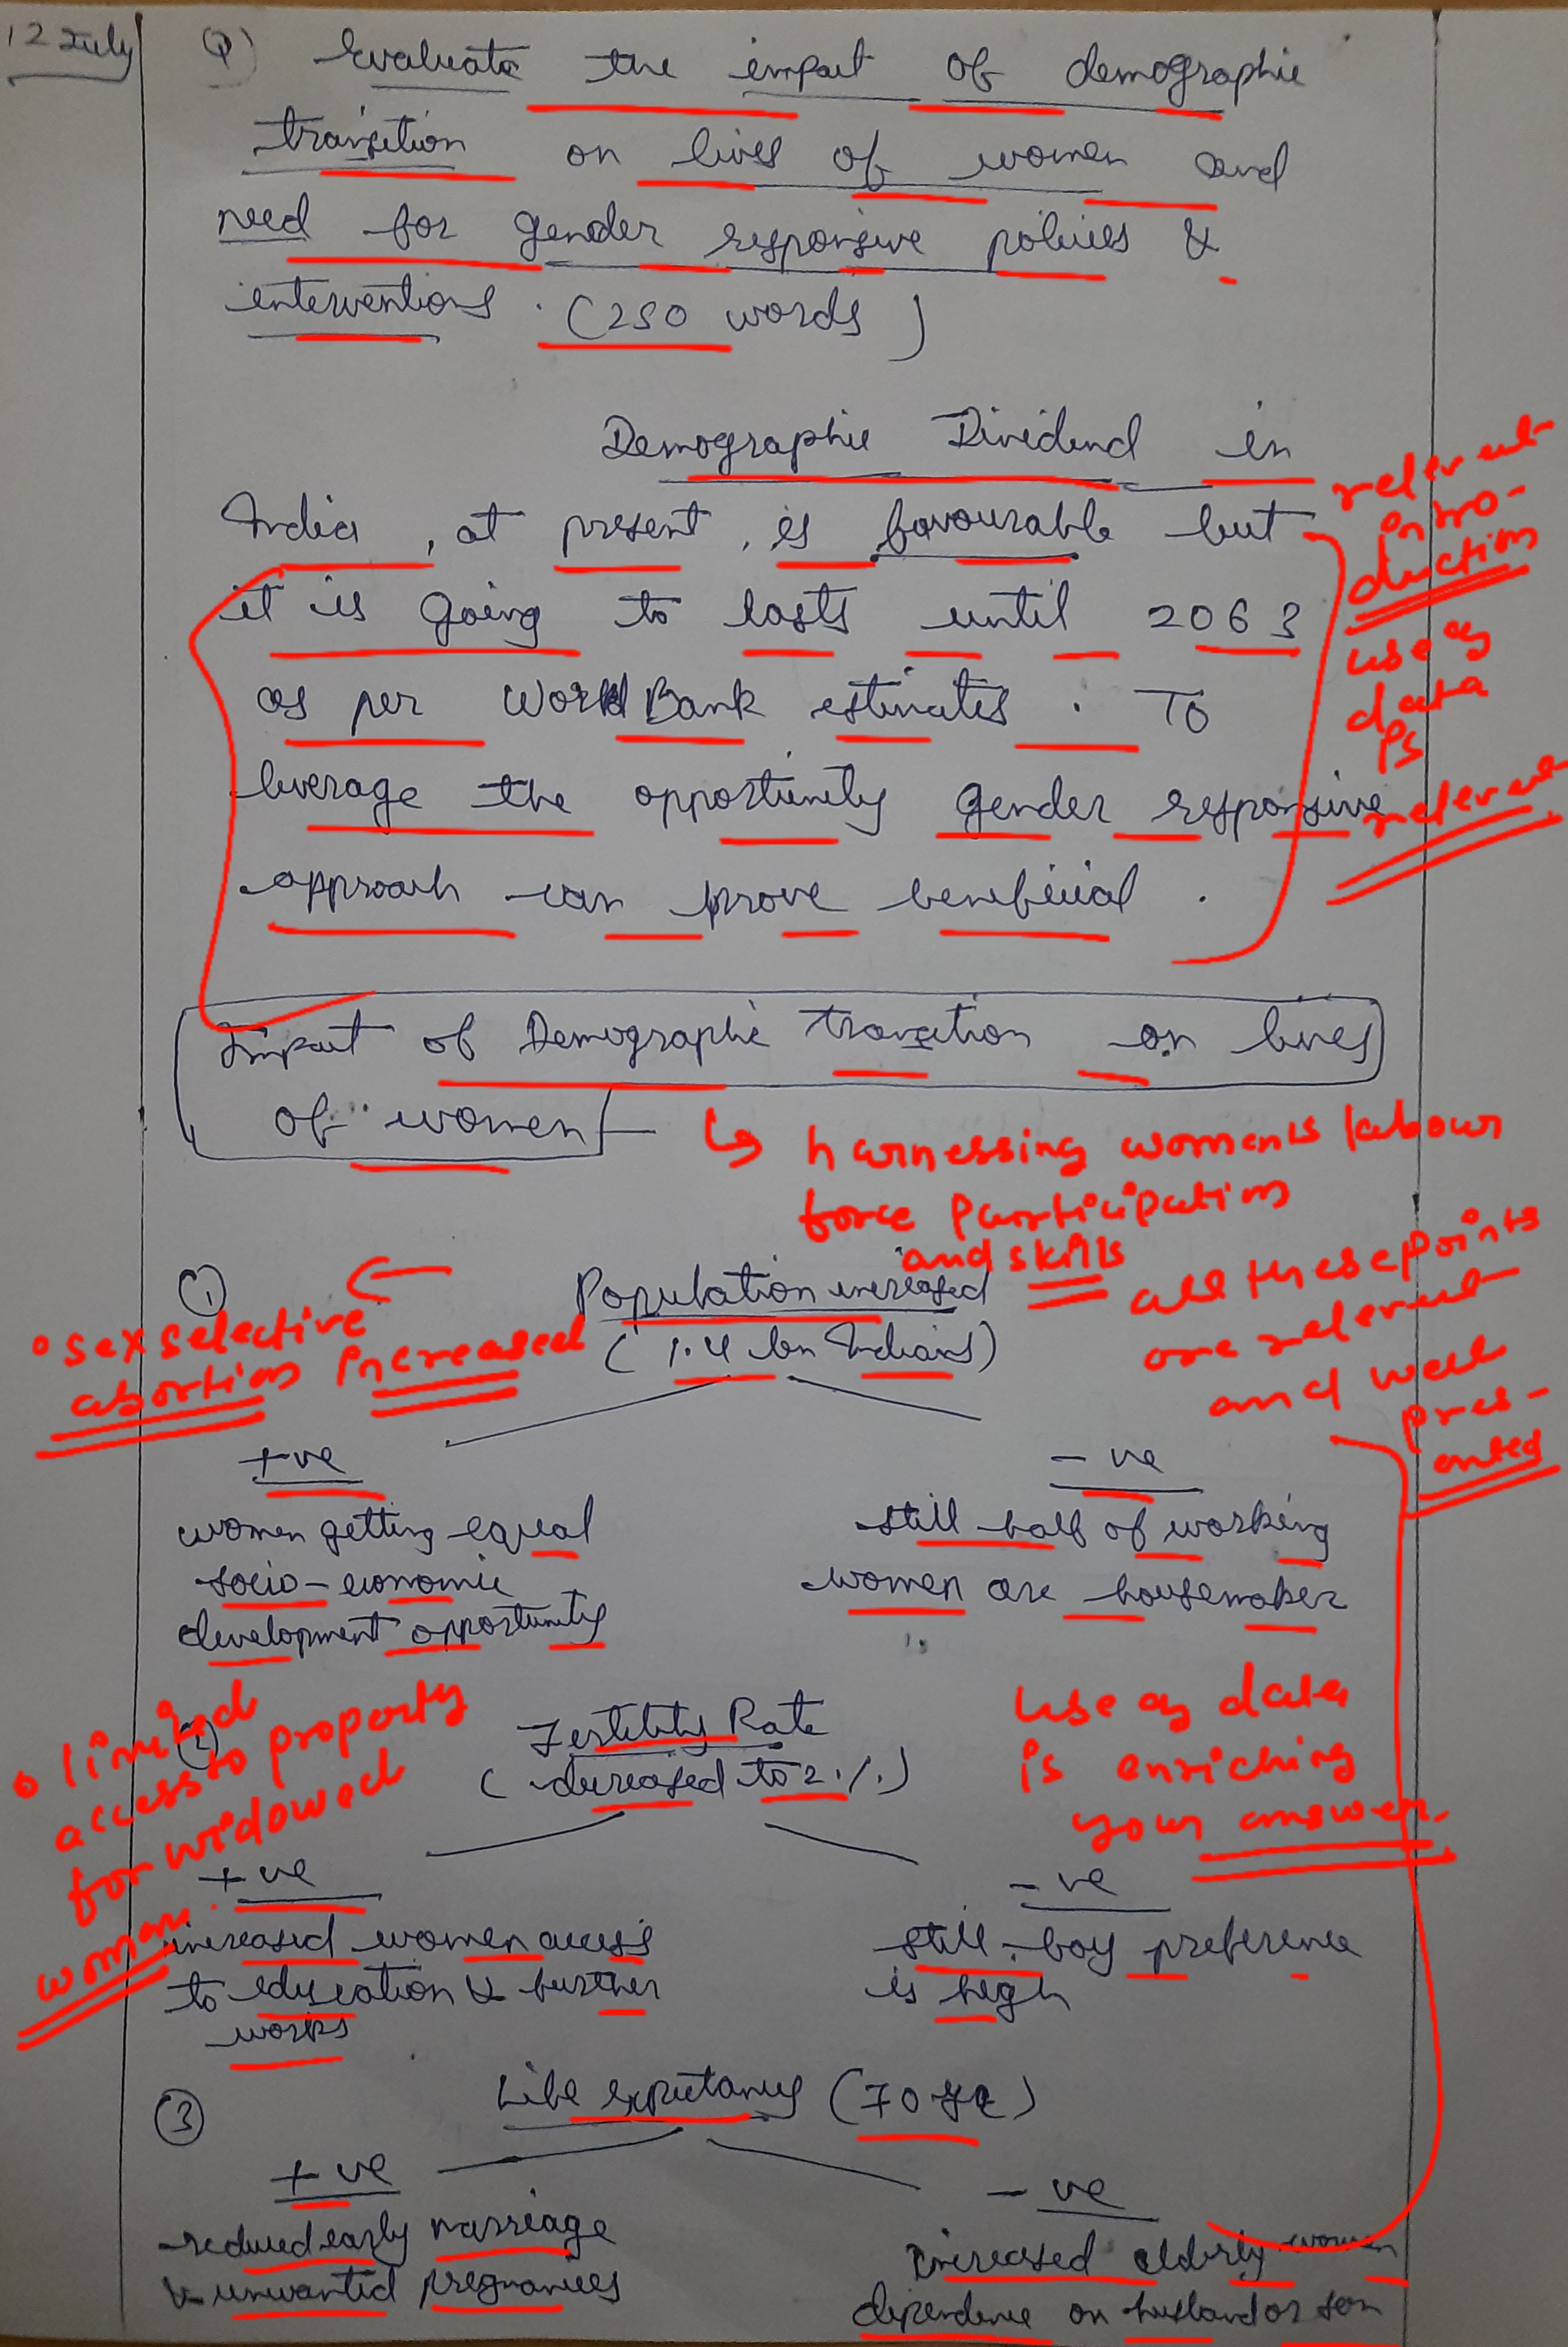 12 July
Q) Evaluate the impact of demographic
transition on lives of women and
need for gender responsive policies &
interventions. (250 words)
Demographic Dividend in
India, at present, is favourable but
it is going to lasts until 2063
as per World Bank estimates. To
leverage the opportunity gender responsive
approach can prove beneficial.
relevent
intro-
duction
use of
data
is
relevent
Impact of Demographic transition on lives
of women
harnessing women's labour
force participation
and skills
① Population increased
(1.4 bn Indians)
• sex selective
abortion increased
all these points
are relevent
and well
pres-
ented
+ve
women getting equal
socio-economic
development opportunity
-ve
still half of working
women are housemaker
② Fertility Rate
(decreased to 2.1.)
• limited
access to property
for widowed
women.
use of data
is enriching
your answer.
+ve
increased women access
to education & further
works
-ve
still boy preference
is high
③ Life expectancy (70 yr)
+ve
-reduced early marriage
& unwanted pregnancies
-ve
increased elderly women
dependence on husband or son